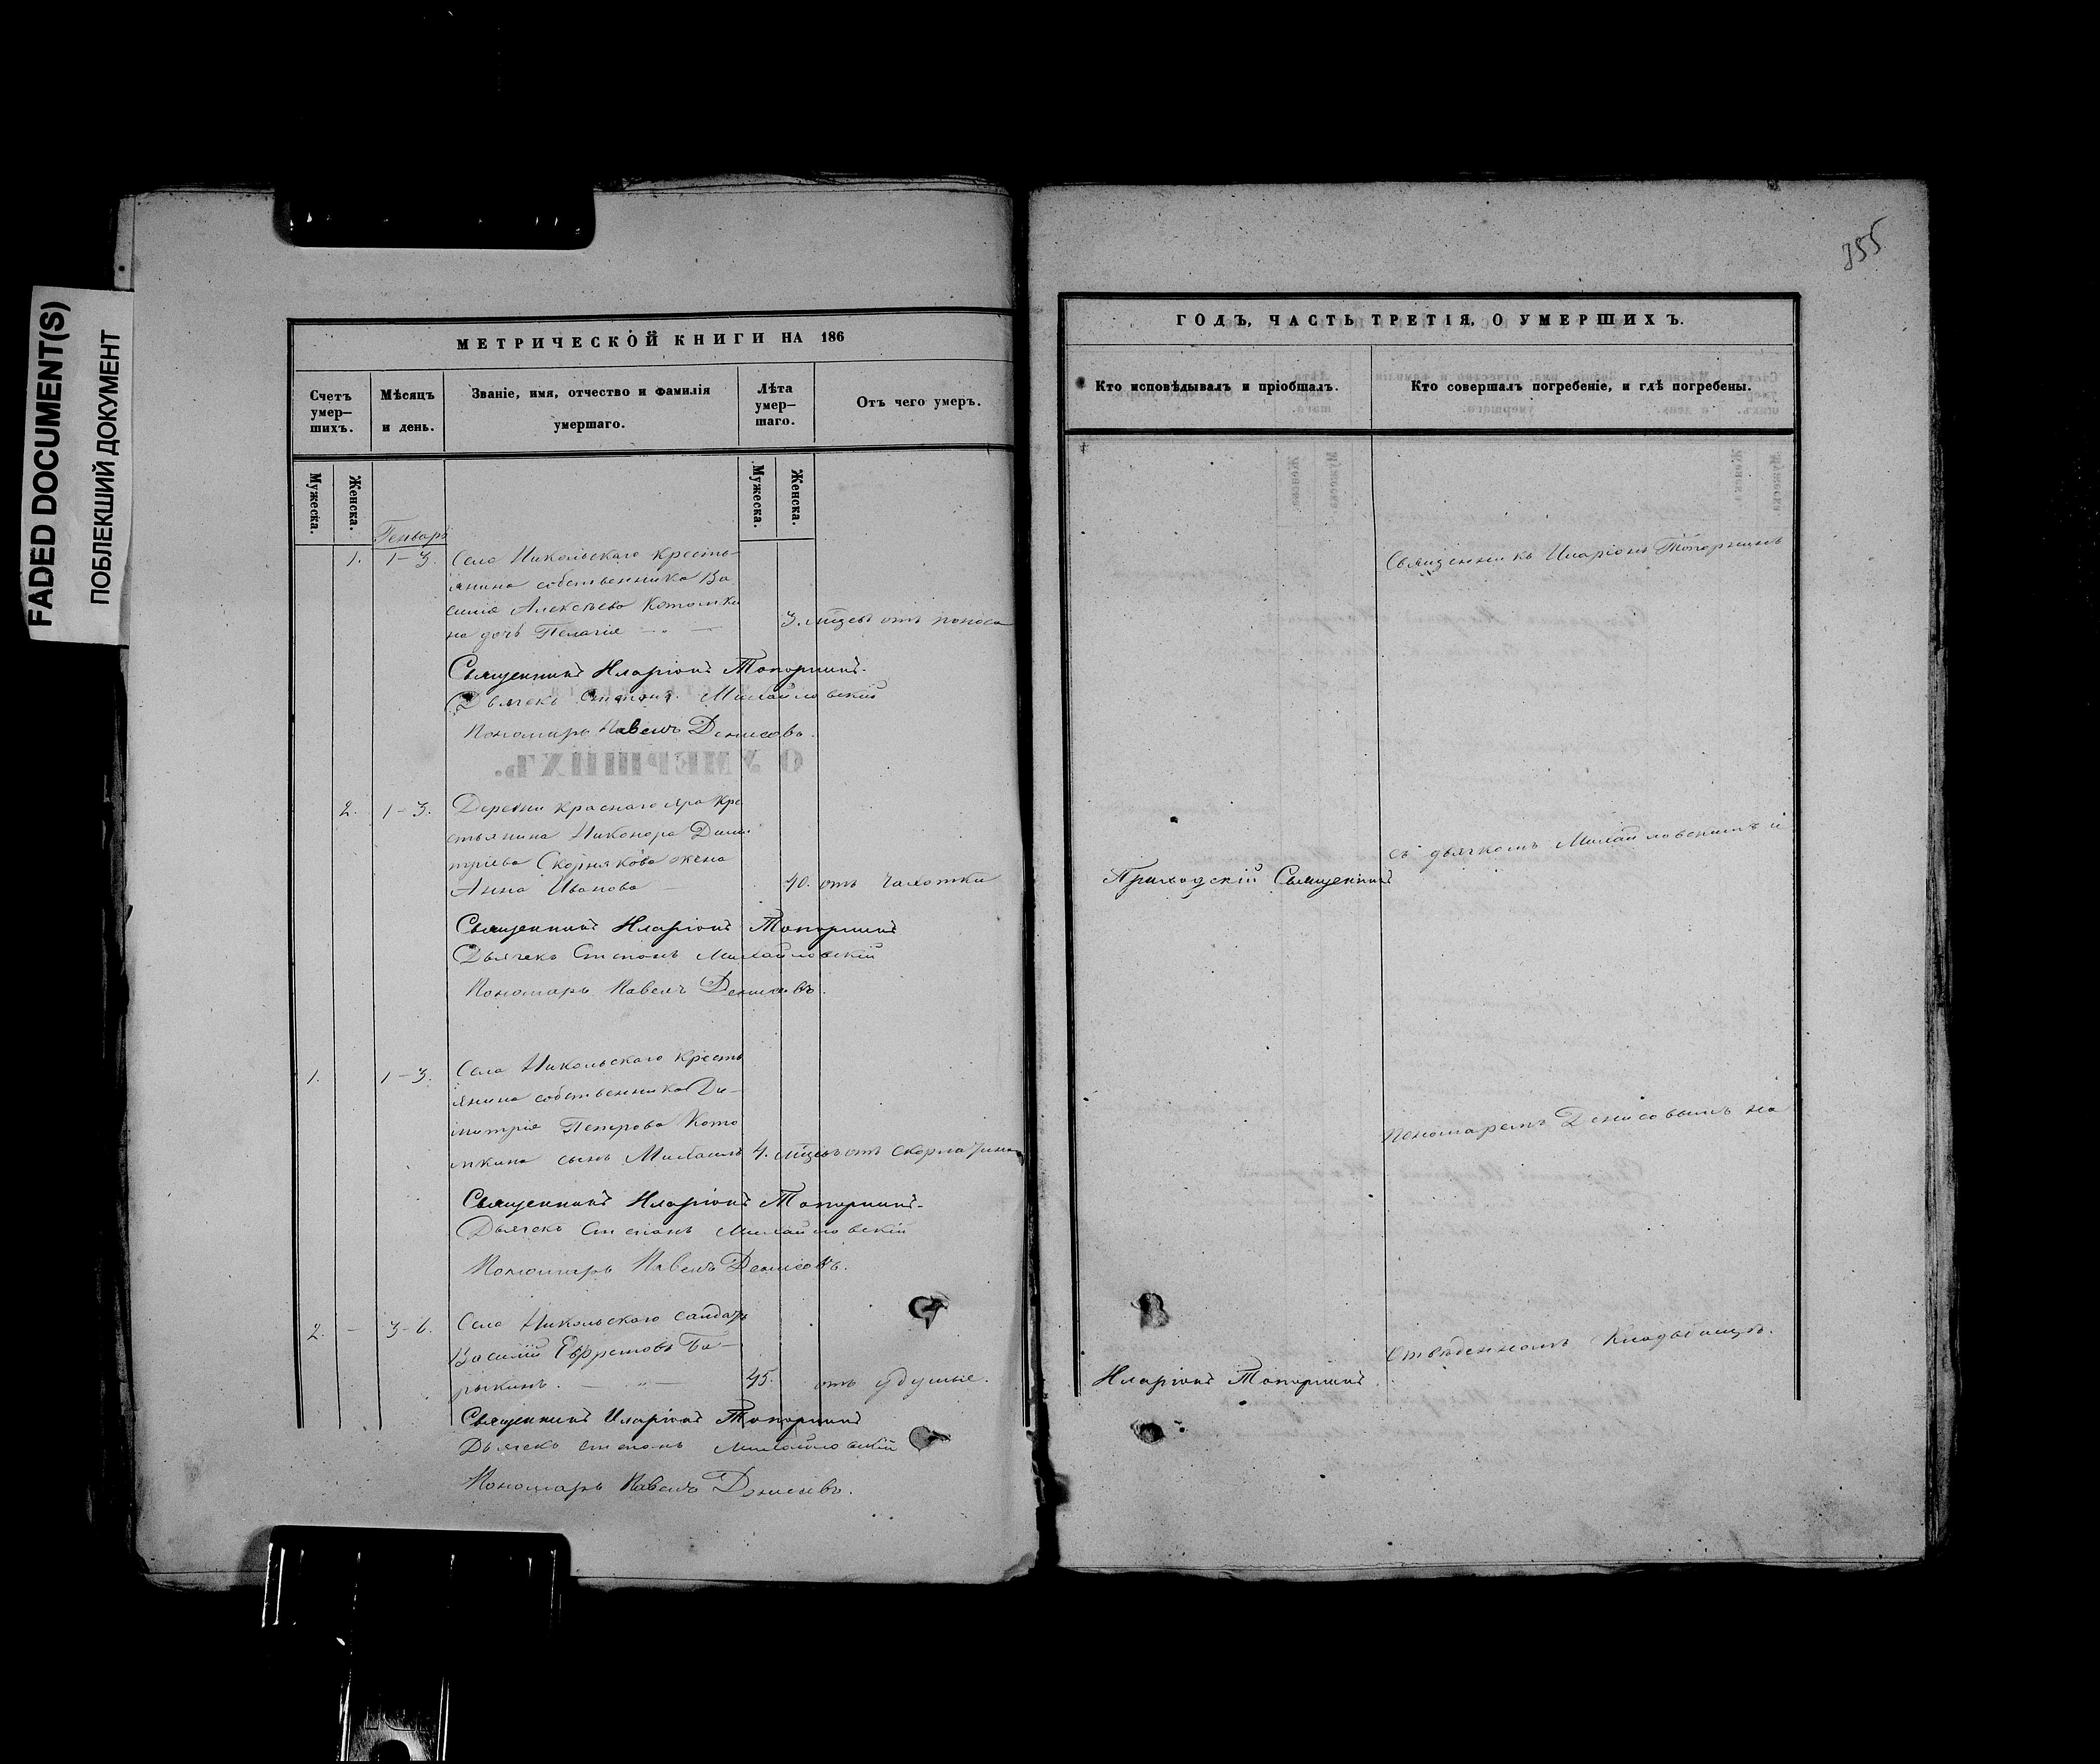 FADED DOCUMENT(S)
ПОБЛЕКШИЙ ДОКУМЕНТ
МЕТРИЧЕСКОЙ КНИГИ НА 186
Счетъ умер—шихъ.
Мѣсяцъ и день.
Званіе, имя, отчество и фамилія умершаго.
Лѣта умер—шаго.
Отъ чего умеръ.
Мужеска.
Женска.
Мужеска.
Женска.
Генварь
1. 1–3. Села Никольскаго кресть-
янина собственника Ва
силія Алексѣева Котомки
на дочь Пелагія 3. мѣсцевъ отъ поноса
Священникъ Иларіонъ Топорнинъ.
Дьячекъ Степанъ Михайловскій
Пономарь Павелъ Денисовъ.
О УМЕРШИХЪ.
2. 1–3. Деревни Краснаго яра кре
стьянина Никонора Дими
тріева Скорнякова жена
Анна Иванова 40. отъ чахотки
Священникъ Иларіонъ Топорнинъ
Дьячекъ Степанъ Михайловскій
Пономарь Павелъ Денисовъ.
1. 1–3. Села Никольскаго кресть
янина собственника Ди-
митрія Петрова Кото
мкина сынъ Михаилъ 4. мѣсцевъ отъ скорлатины
Священникъ Иларіонъ Топорнинъ.
Дьячекъ Степанъ Михайловскій
Пономарь Павелъ Денисовъ.
2. – 3–6. Села Никольскаго салдатъ
Василій Ефремовъ Ба-
рыкинъ. 45. отъ удушья.
Священникъ Иларіонъ Топорнинъ
Дьячекъ Степанъ Михайловскій
Пономарь Павелъ Денисовъ.
355
ГОДЪ, ЧАСТЬ ТРЕТІЯ, О УМЕРШИХЪ.
Кто исповѣдывалъ и пріобщалъ.
Кто совершалъ погребеніе, и гдѣ погребены.
Священникъ Иларіонъ Топорнинъ
съ дьячкомъ Михайловскимъ и
Приходскій Священникъ
пономаремъ Денисовымъ на
отвѣденномъ кладбищѣ.
Иларіонъ Топорнинъ.